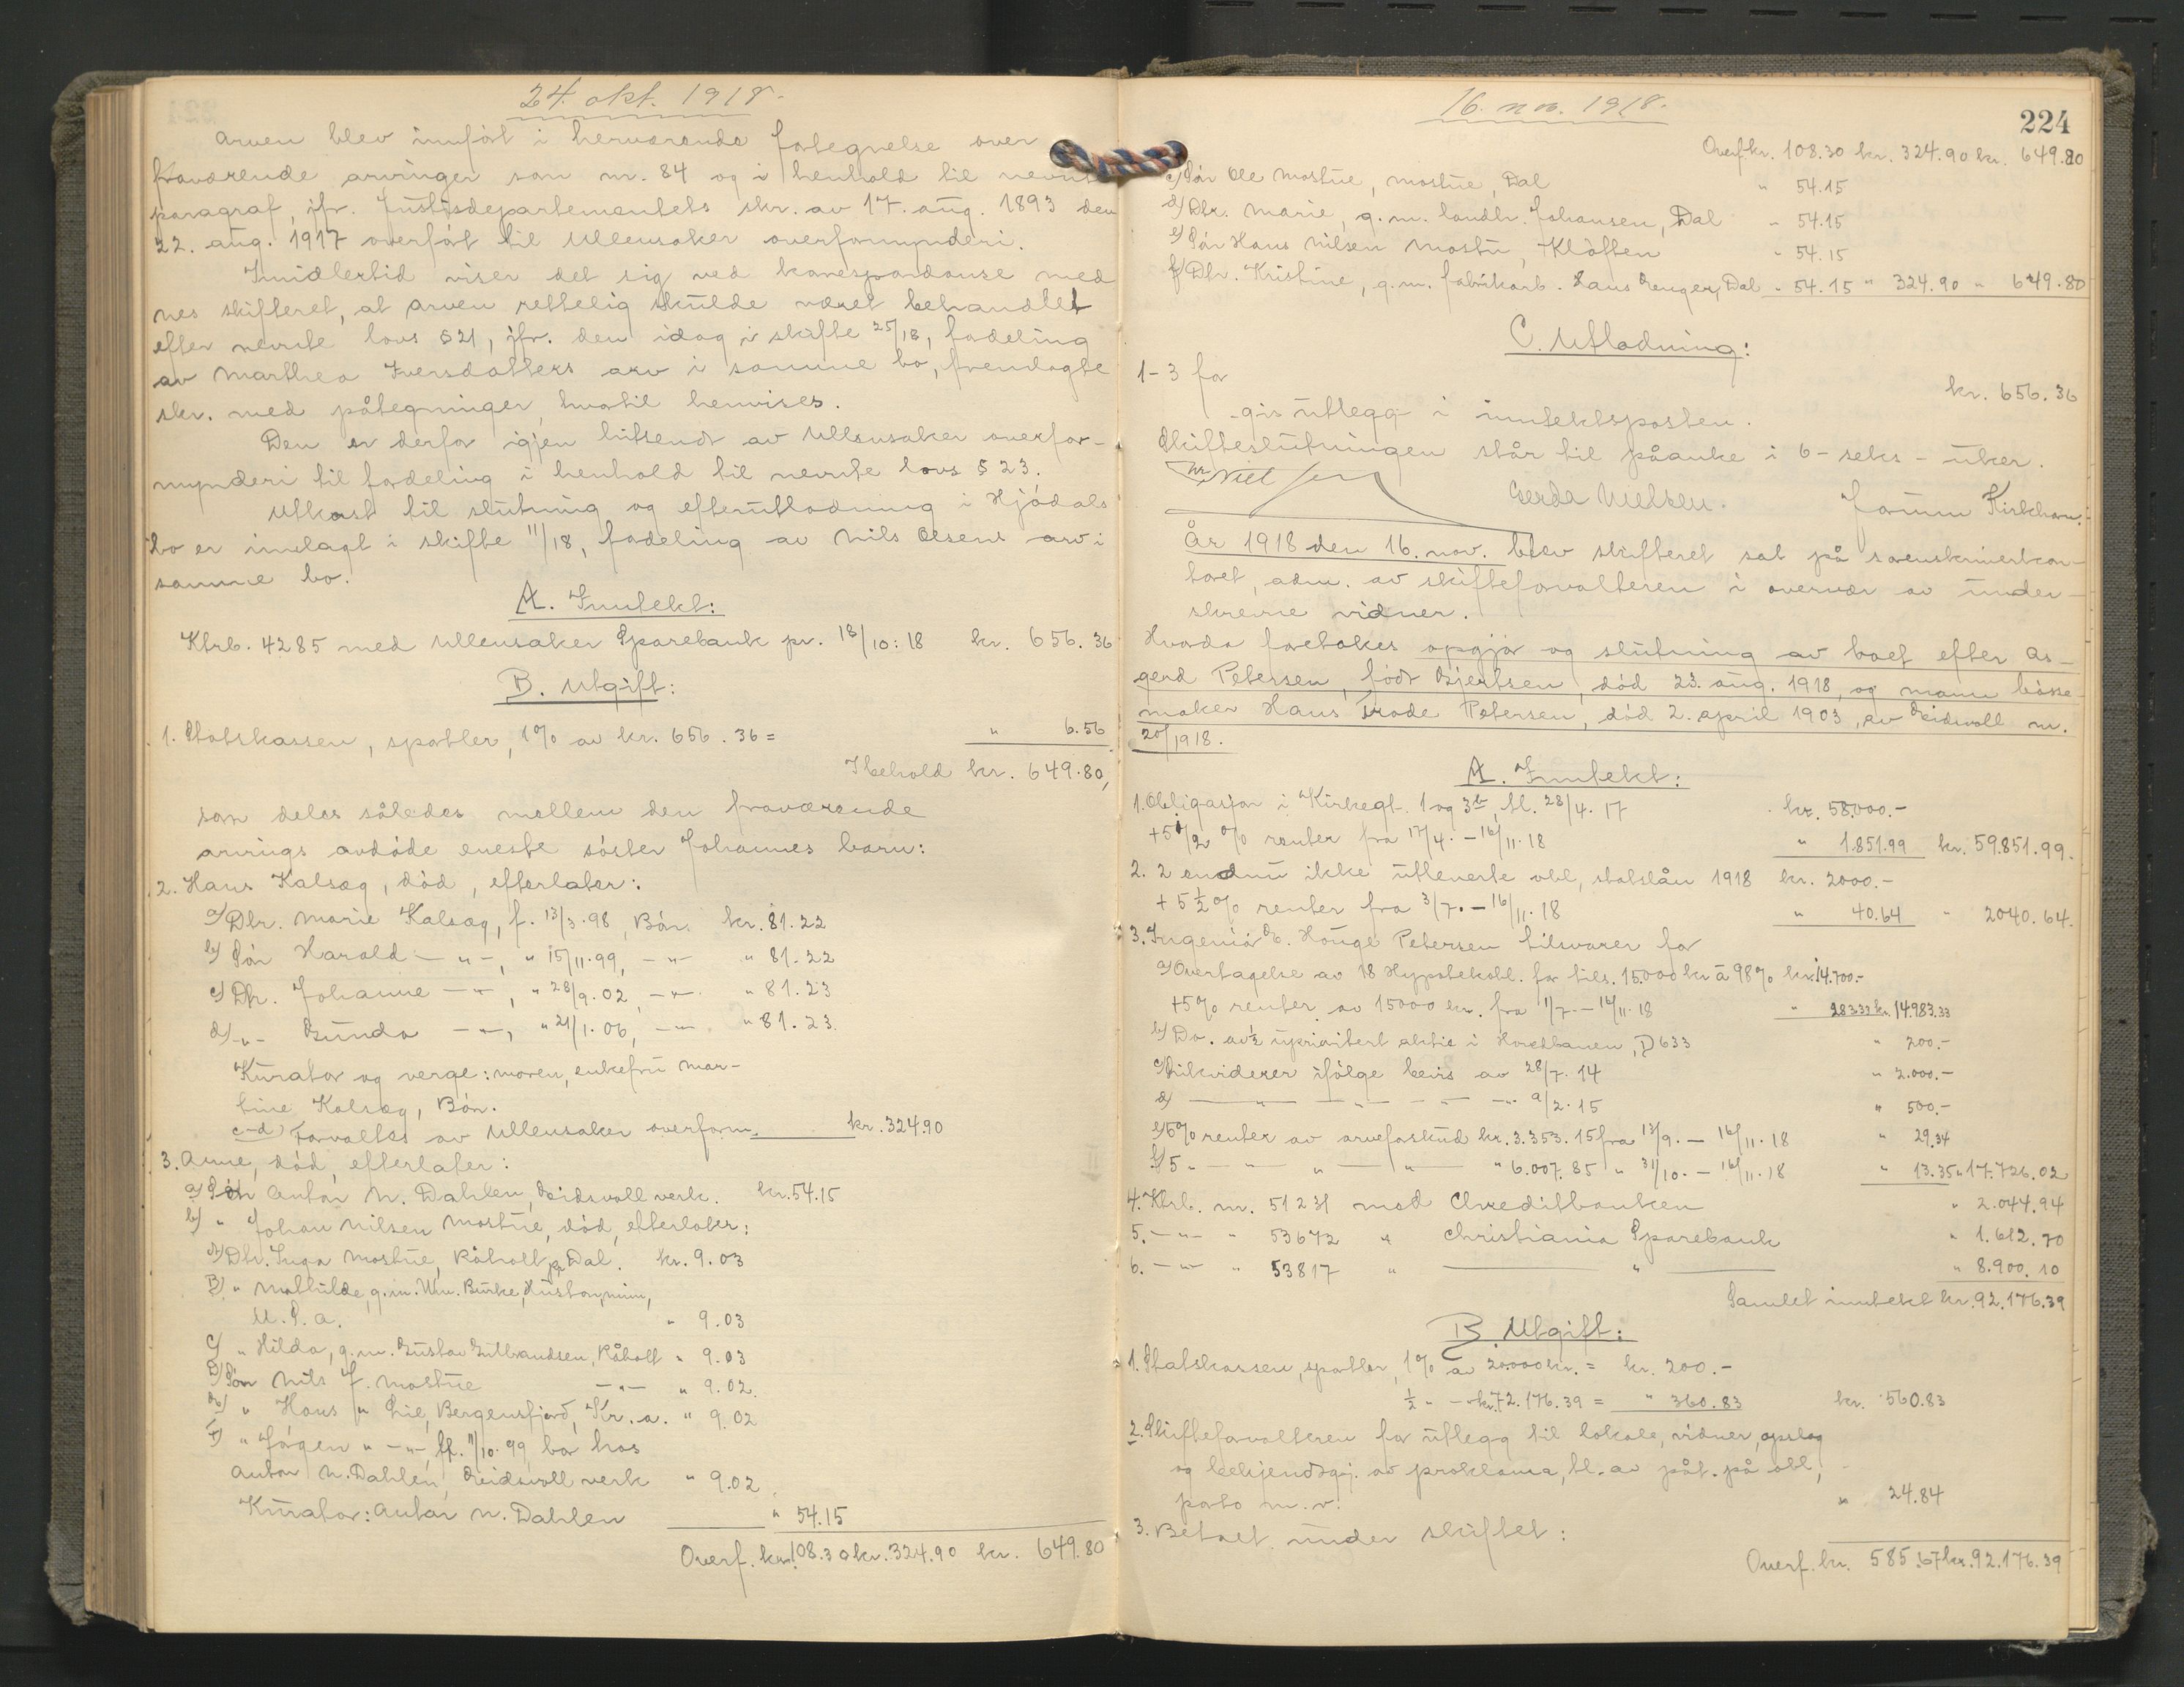 24. okt. 1918.
Arven blev innført i herværende fortegnelse over
fraværende arvinger som nr. 84 og i henhold til nevnte
paragraf, jfr. Justisdepartementets skr. av 17. aug. 1893 den
22. aug. 1917 overført til Ullensaker overformynderi.
Imidlertid viser det sig ved korrespondanse med
nes skifteret, at arven rettelig skulde været behandlet
efter nevnte lovs § 21, jfr. den idag i skifte 25/18, fordeling
av Marthea Iversdatters arv i samme bo, fremlagte
skr. med påtegninger, hvortil henvises.
Den er derfor igjen hitsendt av Ullensaker overfor-
mynderi til fordeling i henhold til nevnte lovs § 23.
Utkast til slutning og efterutlodning i Hjødals
bo er innlagt i skifte 11/18, fordeling av Nils Olsens arv i
samme bo.
A. Inntekt:
Ktrb. 4285 med Ullensaker Sparebank pr. 18/10:18 kr. 656.36
B. Utgift:
1. Statskassen, sportler, 1% av kr. 656.36 = " 6.56
Ibehold kr. 649.80,
som deles således mellem den fraværende
arvings avdøde eneste søster Johannes barn:
2. Hans Kalsæg, død, efterlater:
a) Dtr. Marie Kalsæg, f. 13/3.98, Bøn. kr. 81.22
b) Søn Harald -"-, " 15/11.99, -"- " 81.22
c) Dtr. Johanne -"-, " 28/9.02, -"- " 81.23
d) -"- Gunda -"-, " 21/1.06, -"- " 81.23.
Kurator og verge: moren, enkefru Mar-
tine Kalsæg, Bøn.
c-d) Forvaltes av Ullensaker overform. kr. 324.90
3. Anne, død, efterlater:
a) Søn Anton N. Dahlen, Eidsvoll verk. kr. 54.15
b) " Johan Nilsen Mostue, død, efterlater:
A) Dtr. Inga Mostue, Råholt pr. Dal. kr. 9.03
B) " Mathilde, g.m. Wm. Burke,
U.S.A. " 9.03
C) " Hilda, g.m. Gustav Gulbrandsen, Råholt " 9.03
D) Søn Nils J. Mostue -"- " 9.02.
E) " Hans " Lie, Bergensfjord, Kr.a. " 9.02
F) " Jørgen " -"-, f. 11/10.99, bor hos
Anton N. Dahlen, Eidsvoll verk " 9.02
Kurator: Anton N. Dahlen " 54.15
Overf. kr. 108.30 kr. 324.90 kr. 649.80
16. nov. 1918.
224
Overf. kr. 108.30 kr. 324.90 kr. 649.80
c) Søn Ole Mostue, Mostue, Dal " 54.15
d) Dtr. Marie, g.m. landh. Johansen, Dal " 54.15
e) Søn Hans Nilsen Mostu, Kløften " 54.15
f) Dtr. Kristine, g.m. fabrikarb. Lars Venger, Dal " 54.15 " 324.90 " 649.80
C. Utlodning:
1-3 for kr. 656.36
gis utlegg i inntektsposten.
Skifteslutningen står til påanke i 6-seks-uker.
Gerda Nielsen.
År 1918 den 16. nov. blev skifteret sat på sorenskriverkon-
toret, adm. av skifteforvalteren i overvær av under-
skrevne vidner.
Hvorda foretokes opgjør og slutning av boet efter As-
gerd Petersen, født Gjertsen, død 23. aug. 1918, og mann bøsse-
maker Hans Trode Petersen, død 2. april 1903, av Eidsvoll nr.
20/1918.
A. Inntekt:
1. Obligasjon i Kirkegt. 1 og 3b, tl. 28/4.17 kr. 58.000.-
+ 5 1/2 % renter fra 17/4. - 16/11.18 " 1.851.99 kr. 59.851.99.
2. 2 endnu ikke utleverte obl., statslån 1918 kr. 2000.-
+ 5 1/2 % renter fra 3/7. - 16/11.18 " 40.64 " 2040.64.
3. Ingeniør G. Houge Petersen tilsvarer for
a) Overtagelse av 18 Hypotekobl. for tils. 15.000 kr à 98% kr. 14.700.-
+ 5% renter av 15000 kr. fra 1/7. - 16/11.18 " 283.33 kr. 14.983.33
b) Do. av 1/2 uprioritert aktie i Hovedbanen, D 633 " 200.-
c) Likviderer ifølge bevis av 28/7.14 " 2.000.-
d) -"- -"- -"- 9/2.15 " 500.-
e) 5% renter av arveforskud kr. 3.353.15 fra 13/9. - 16/11.18 " 29.34
f) 5 " -"- " -"- " 6.007.85 " 31/10. - 16/11.18 " 13.35 " 17.726.02
4. Ktrb. nr. 51231 med Chreditbanken " 2.044.94
5. -"- " 53672 " Christiania Sparebank " 1.612.70
6. -"- " 53817 " -"- " 8.900.10
Samlet inntekt kr. 92.176.39
B. Utgift:
1. Statskassen, sportler, 1% av 20.000 kr. = kr. 200.-
1/2 " -"- kr. 72.176.39 = " 360.83 kr. 560.83
2. Skifteforvalteren for utlegg til lokale, vidner, opslag
og bekjendtgj. av proklama, tl. av påt. på obl.,
porto m.v. " 24.84
3. Betalt under skiftet:
Overf. kr. 585.67 kr. 92.176.39